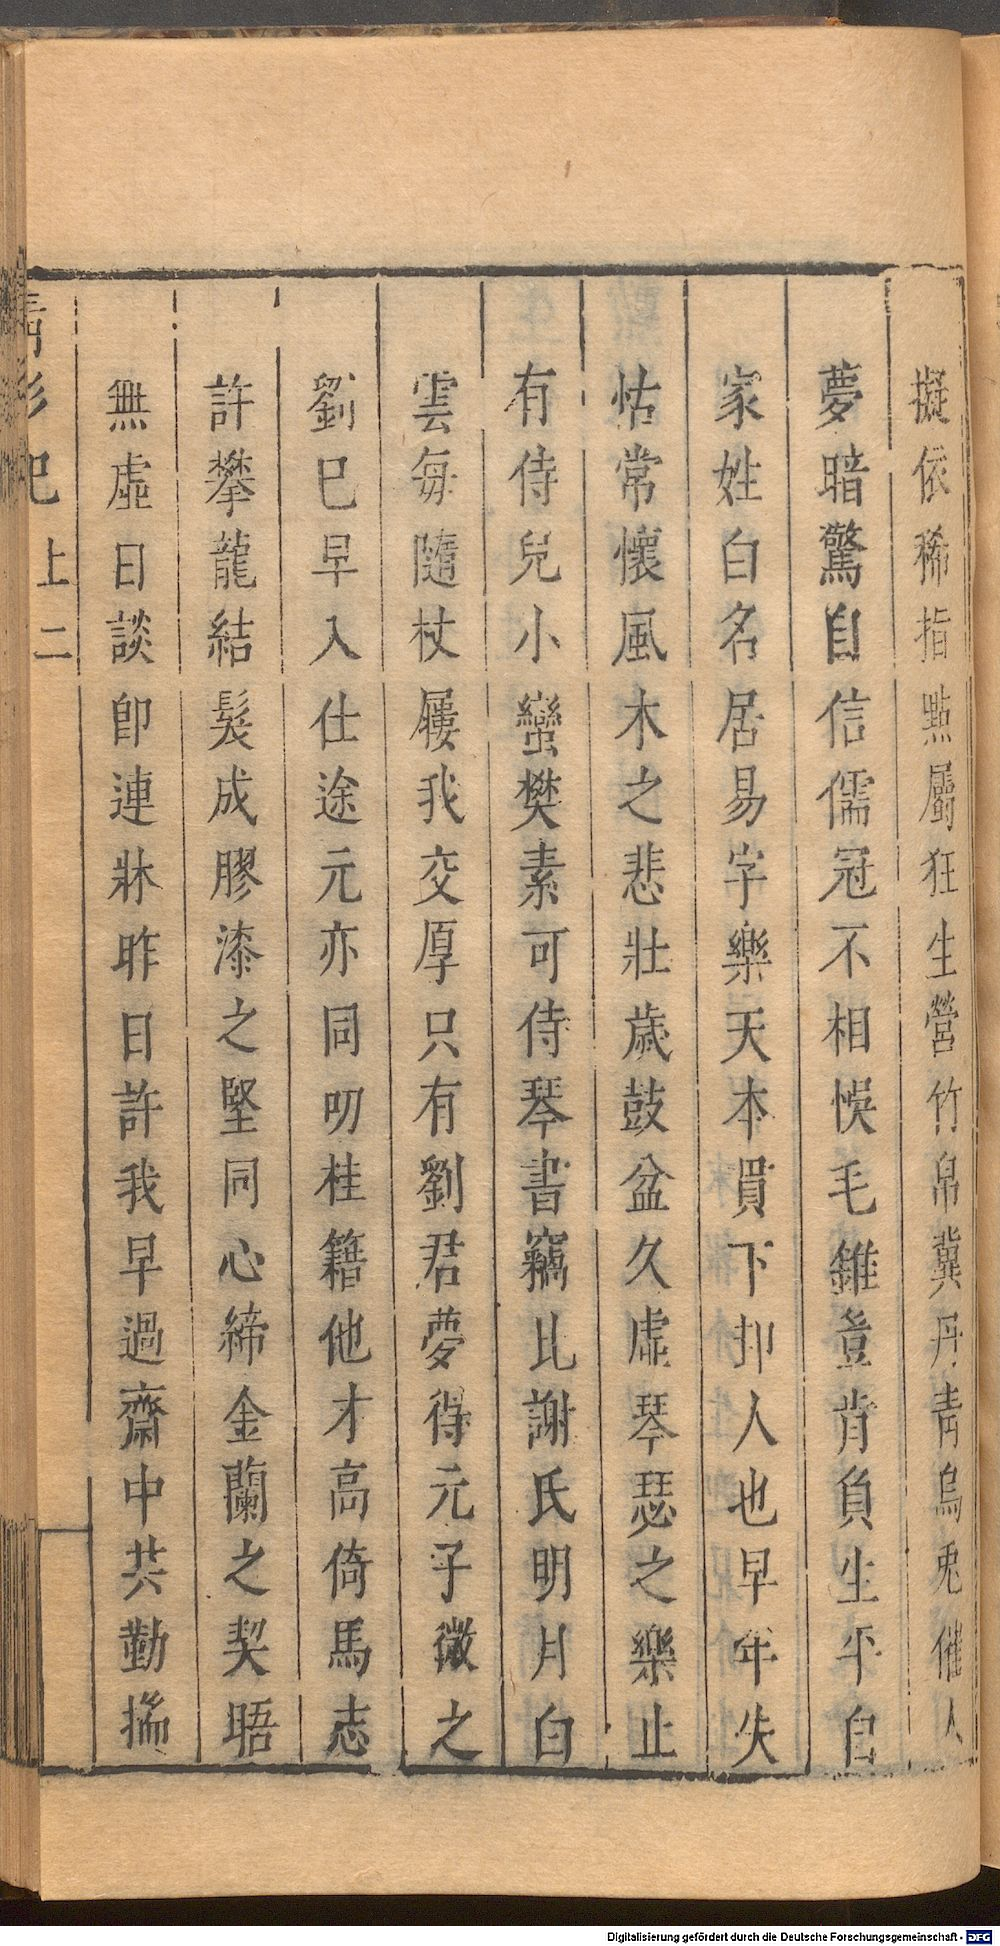 擬依稀指點屬狂生營竹帛冀丹青烏兎催人
夢暗驚自信儒冠不相悞毛錐豈肯負生平自
家姓白名居易字樂天本貫下邽人也早年失
怙常懷風木之悲壯歲鼓盆久虛琴瑟之樂止
有侍兒小蠻樊素可侍琴書竊比謝氏明月白
雲每隨杖屨我交厚只有劉君夢得元子微之
劉已早入仕途元亦同叨桂籍他才高倚馬志
許攀龍結髮成膠漆之堅同心締金蘭之契晤
無虛日談卽連牀昨日許我早過齋中共勤揣
青衫記 上 二
Digitalisierung gefördert durch die Deutsche Forschungsgemeinschaft - DFG